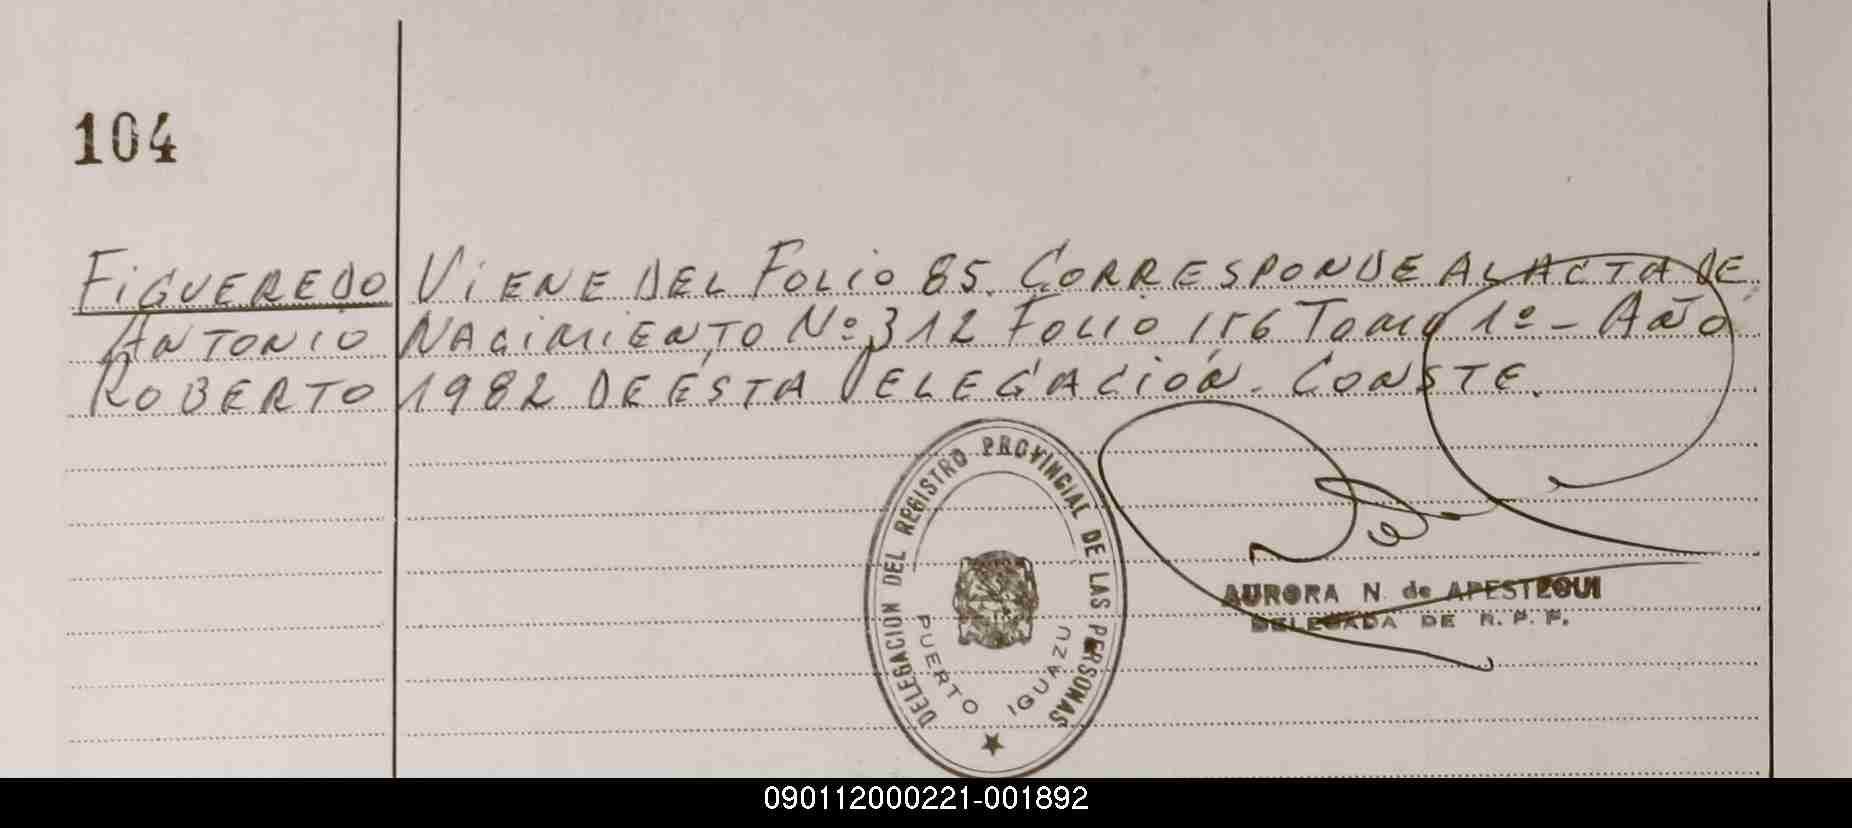 104
FIGUEREDO
ANTONIO
ROBERTO
VIENE DEL FOLIO 85. CORRESPONDE AL ACTA DE
NACIMIENTO Nº 312 FOLIO 156 TOMO 1º - AÑO
1982 DE ÉSTA DELEGACIÓN. CONSTE.
DELEGACION DEL REGISTRO PROVINCIAL DE LAS PERSONAS
PUERTO IGUAZU
AURORA N. de APESTEGUI
DELEGADA DE R. P. P.
090112000221-001892